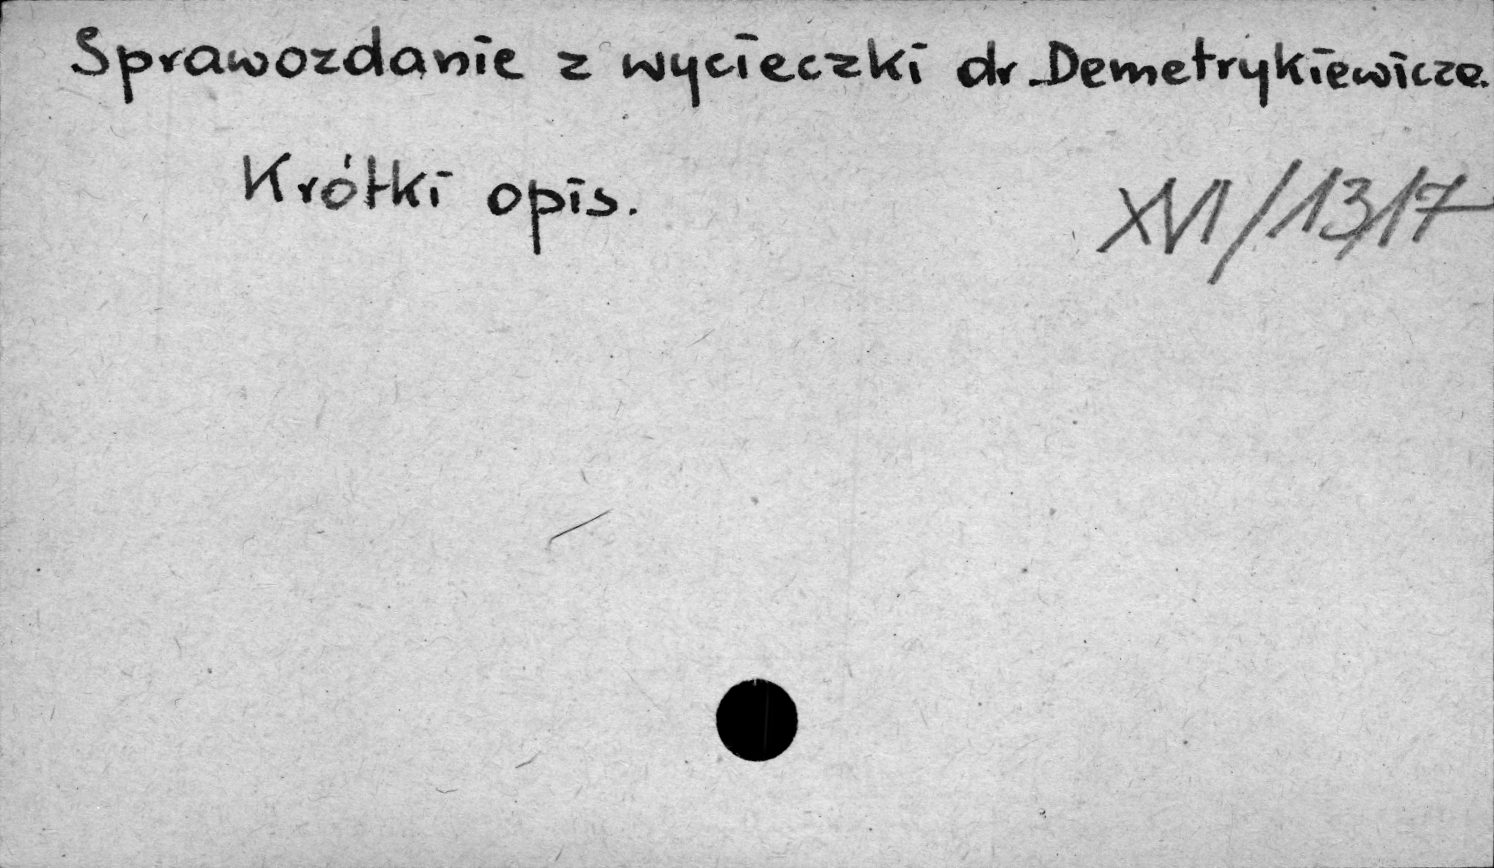 Sprawozdanie z wycieczki dr Demetrykiewicza.
Krótki opis.
XVI/13/17